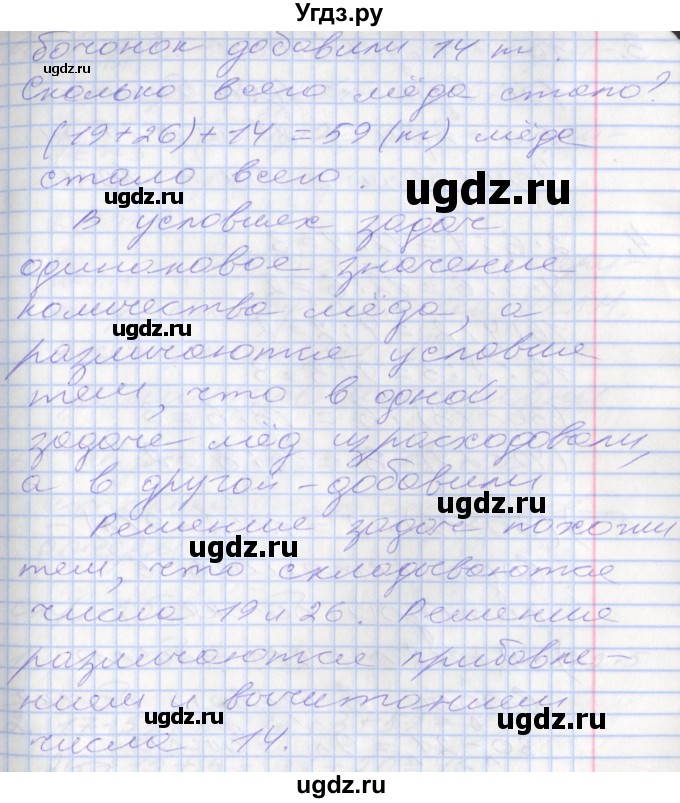 Угдз.ру
бочонок добавили 14 кг.
Сколько всего мёда стало?
(19+26)+14=59 (кг) мёда
стало всего.
В условиях задач
одинаковое значение
количества мёда, а
различаются условия
тем, что в одной
задаче мёд израсходовали,
а в другой – добавили
Решение задач похожи
тем, что складываются
числа 19 и 26. Решение
различаются прибавле-
нием и вычитанием
числа 14.
ugdz.ru
ugdz.ru
ugdz.ru
ugdz.ru
ugdz.ru
ugdz.ru
ugdz.ru
ugdz.ru
ugdz.ru
ugdz.ru